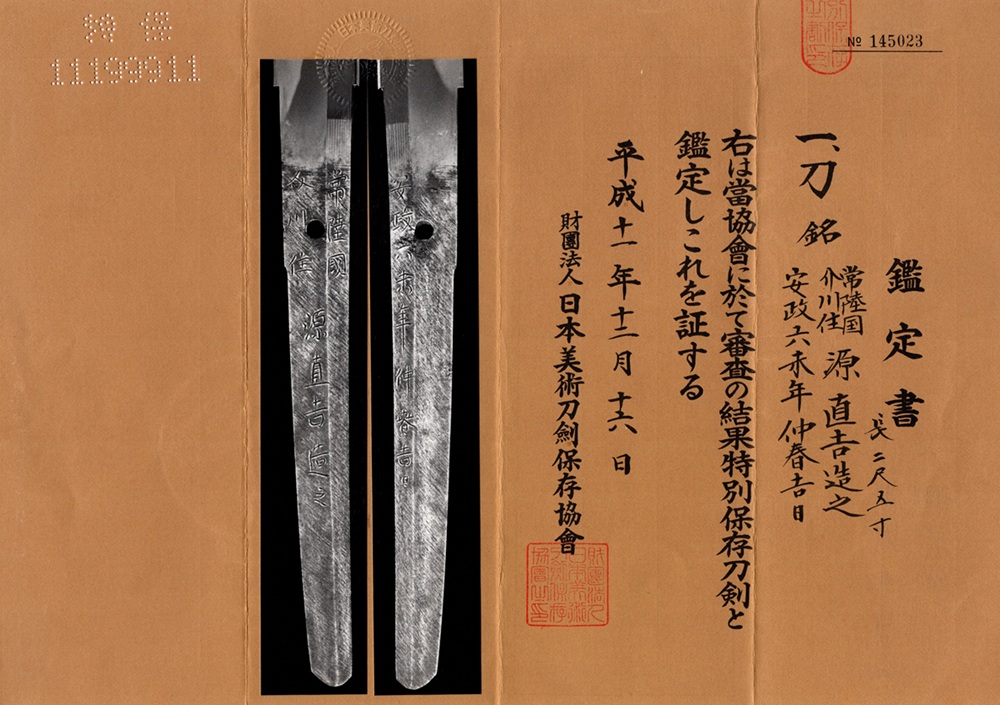 № 145023
鑑定書
長二尺五寸
一、刀 銘
常陸国
介川住
源直吉造之
安政六未年仲春吉日
右は當協會に於て審査の結果特別保存刀剣と
鑑定しこれを証する
平成十一年十二月十六日
財團法人日本美術刀劍保存協會
安政六未年仲春吉
常陸國
源直吉造之
特保
11199911